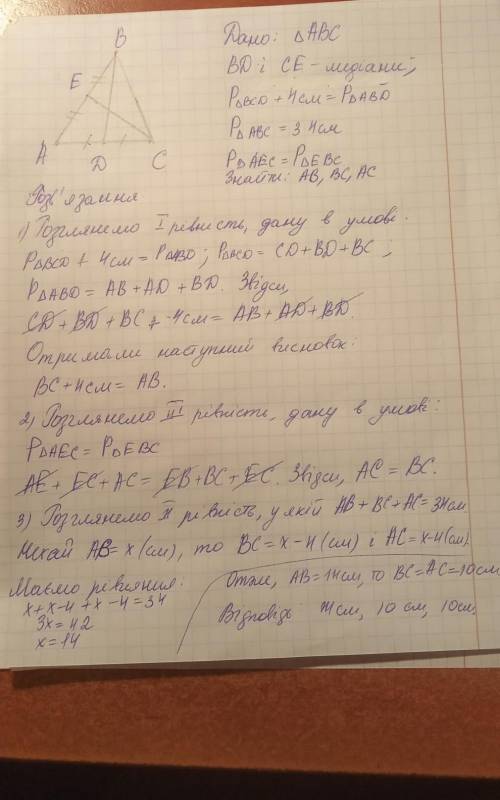 B
E
A
D
C
Дано: △ABC
BD і CE – медіани;
P△BCD + 4см = P△ABD
P△ABC = 34см
P△AEC = P△EBC
Знайти: AB, BC, AC
Розв'язання
1) Розглянемо I рівність, дану в умові:
P△BCD + 4см = P△ABD; P△BCD = CD + BD + BC;
P△ABD = AB + AD + BD. Звідси,
CD + BD + BC + 4см = AB + AD + BD.
Отримали наступний висновок:
BC + 4см = AB.
2) Розглянемо III рівність, дану в умові:
P△AEC = P△EBC
AE + EC + AC = EB + BC + EC. Звідси, AC = BC.
3) Розглянемо II рівність, у якій AB + BC + AC = 34см
Нехай AB = x (см), то BC = x – 4 (см) і AC = x – 4 (см)
Маємо рівняння:
x + x – 4 + x – 4 = 34
3x = 42
x = 14
Отже, AB = 14см, то BC = AC = 10см
Відповідь 14см, 10 см, 10см